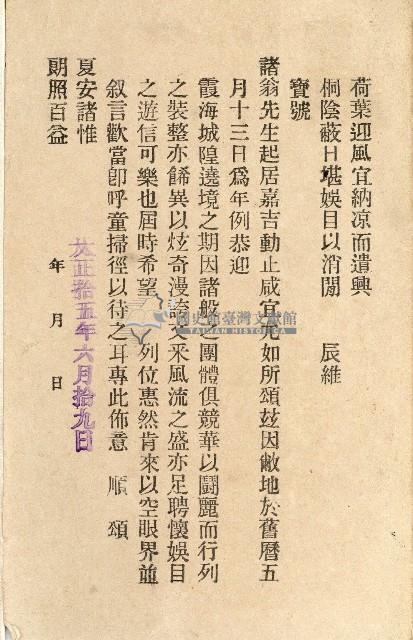 荷葉迎風宜納凉而遣興
桐陰蔽日堪娛目以消閒　辰維
寶號
諸翁先生起居嘉吉動止咸宜允如所頌玆因敝地於舊曆五
月十三日爲年例恭迎
霞海城隍遶境之期因諸般之團體俱競華以鬪麗而行列
之裝整亦餙異以炫奇漫誇文采風流之盛亦足聘懷娛目
之遊信可樂也屆時希望　列位惠然肯來以空眼界並
叙言歡當卽呼童掃徑以待之耳專此佈意　順　頌
夏安諸惟
朗照百益
大正拾五年六月拾九日
年　月　日
國史館臺灣文獻館
TAIWAN HISTORICA